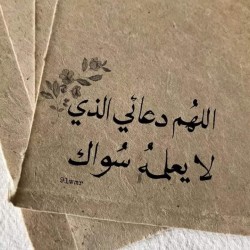 اللهُم دعائي الذي
لا يعلمهُ سُواك